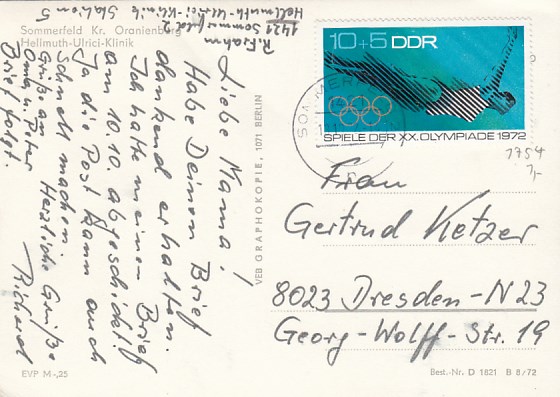 Sommerfeld Kr. Oranienburg
Hellmuth-Ulrici-Klinik
R. Frahm
1421 Sommerfeld
Hellmuth-Ulrici-Klinik
Station 5
Liebe Mama!
Habe Deinen Brief
dankend erhalten.
Ich hatte meinen Brief
am 10.10. abgeschickt!
Ja die Post kann auch
schnell machen.
Herzliche Grüße
Richard
Grüße an
Oma u. Peter
Brief folgt.
VEB GRAPHOKOPIE, 1071 BERLIN
10+5 DDR
SPIELE DER XX. OLYMPIADE 1972
1754
1,-
Frau
Gertrud Ketzer
8023 Dresden-N 23
Georg-Wolff-Str. 19
EVP M -,25
Best.-Nr. D 1821 B 8/72